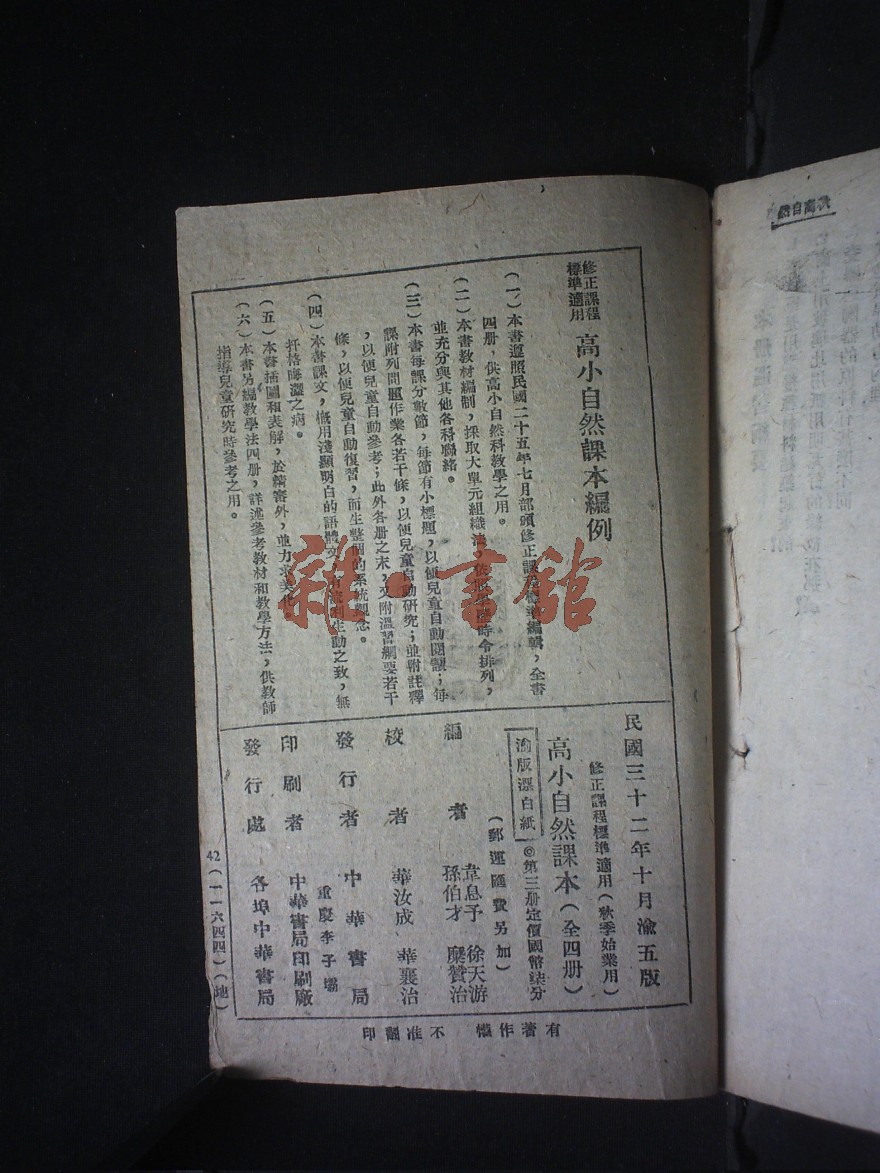 修正課程
標準適用
高小自然課本編例
(一)本書遵照民國二十五年七月部頒修正課程標準編輯，全書
四册，供高小自然科教學之用。
(二)本書教材編制，採取大單元組織法，依照 時令排列，
並充分與其他各科聯絡。
(三)本書每課分數節，每節有小標題，以便兒童自動閱讀；每
課附列問題作業各若干條，以便兒童自動研究；並附註釋
，以便兒童自動參考；此外各册之末，又附溫習綱要若干
條，以便兒童自動復習，而生整個的系統觀念。
(四)本書課文，概用淺顯明白的語體文， 流利生動之致，無
扞格晦澀之病。
(五)本書插圖和表解，於精審外，並力求美化。
(六)本書另編教學法四册，詳述參考教材和教學方法，供教師
指導兒童研究時參考之用。
民國三十二年十月渝五版
修正課程標準適用(秋季始業用)
高小自然課本(全四册)
渝版漂白紙
◎第三册定價國幣柒分
(郵運匯費另加)
編者 韋息予 徐天游
孫伯才 糜贊治
校者 華汝成 華襄治
發行者 中華書局
重慶李子壩
印刷者 中華書局印刷廠
發行處 各埠中華書局
42(一一六四四)(地)
有著作權 不准翻印
雜·書館
高自然